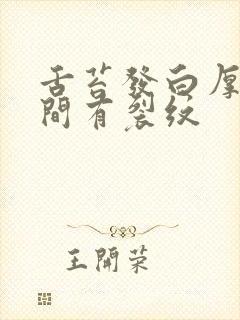 舌苔發白厚
間有裂紋
王開榮